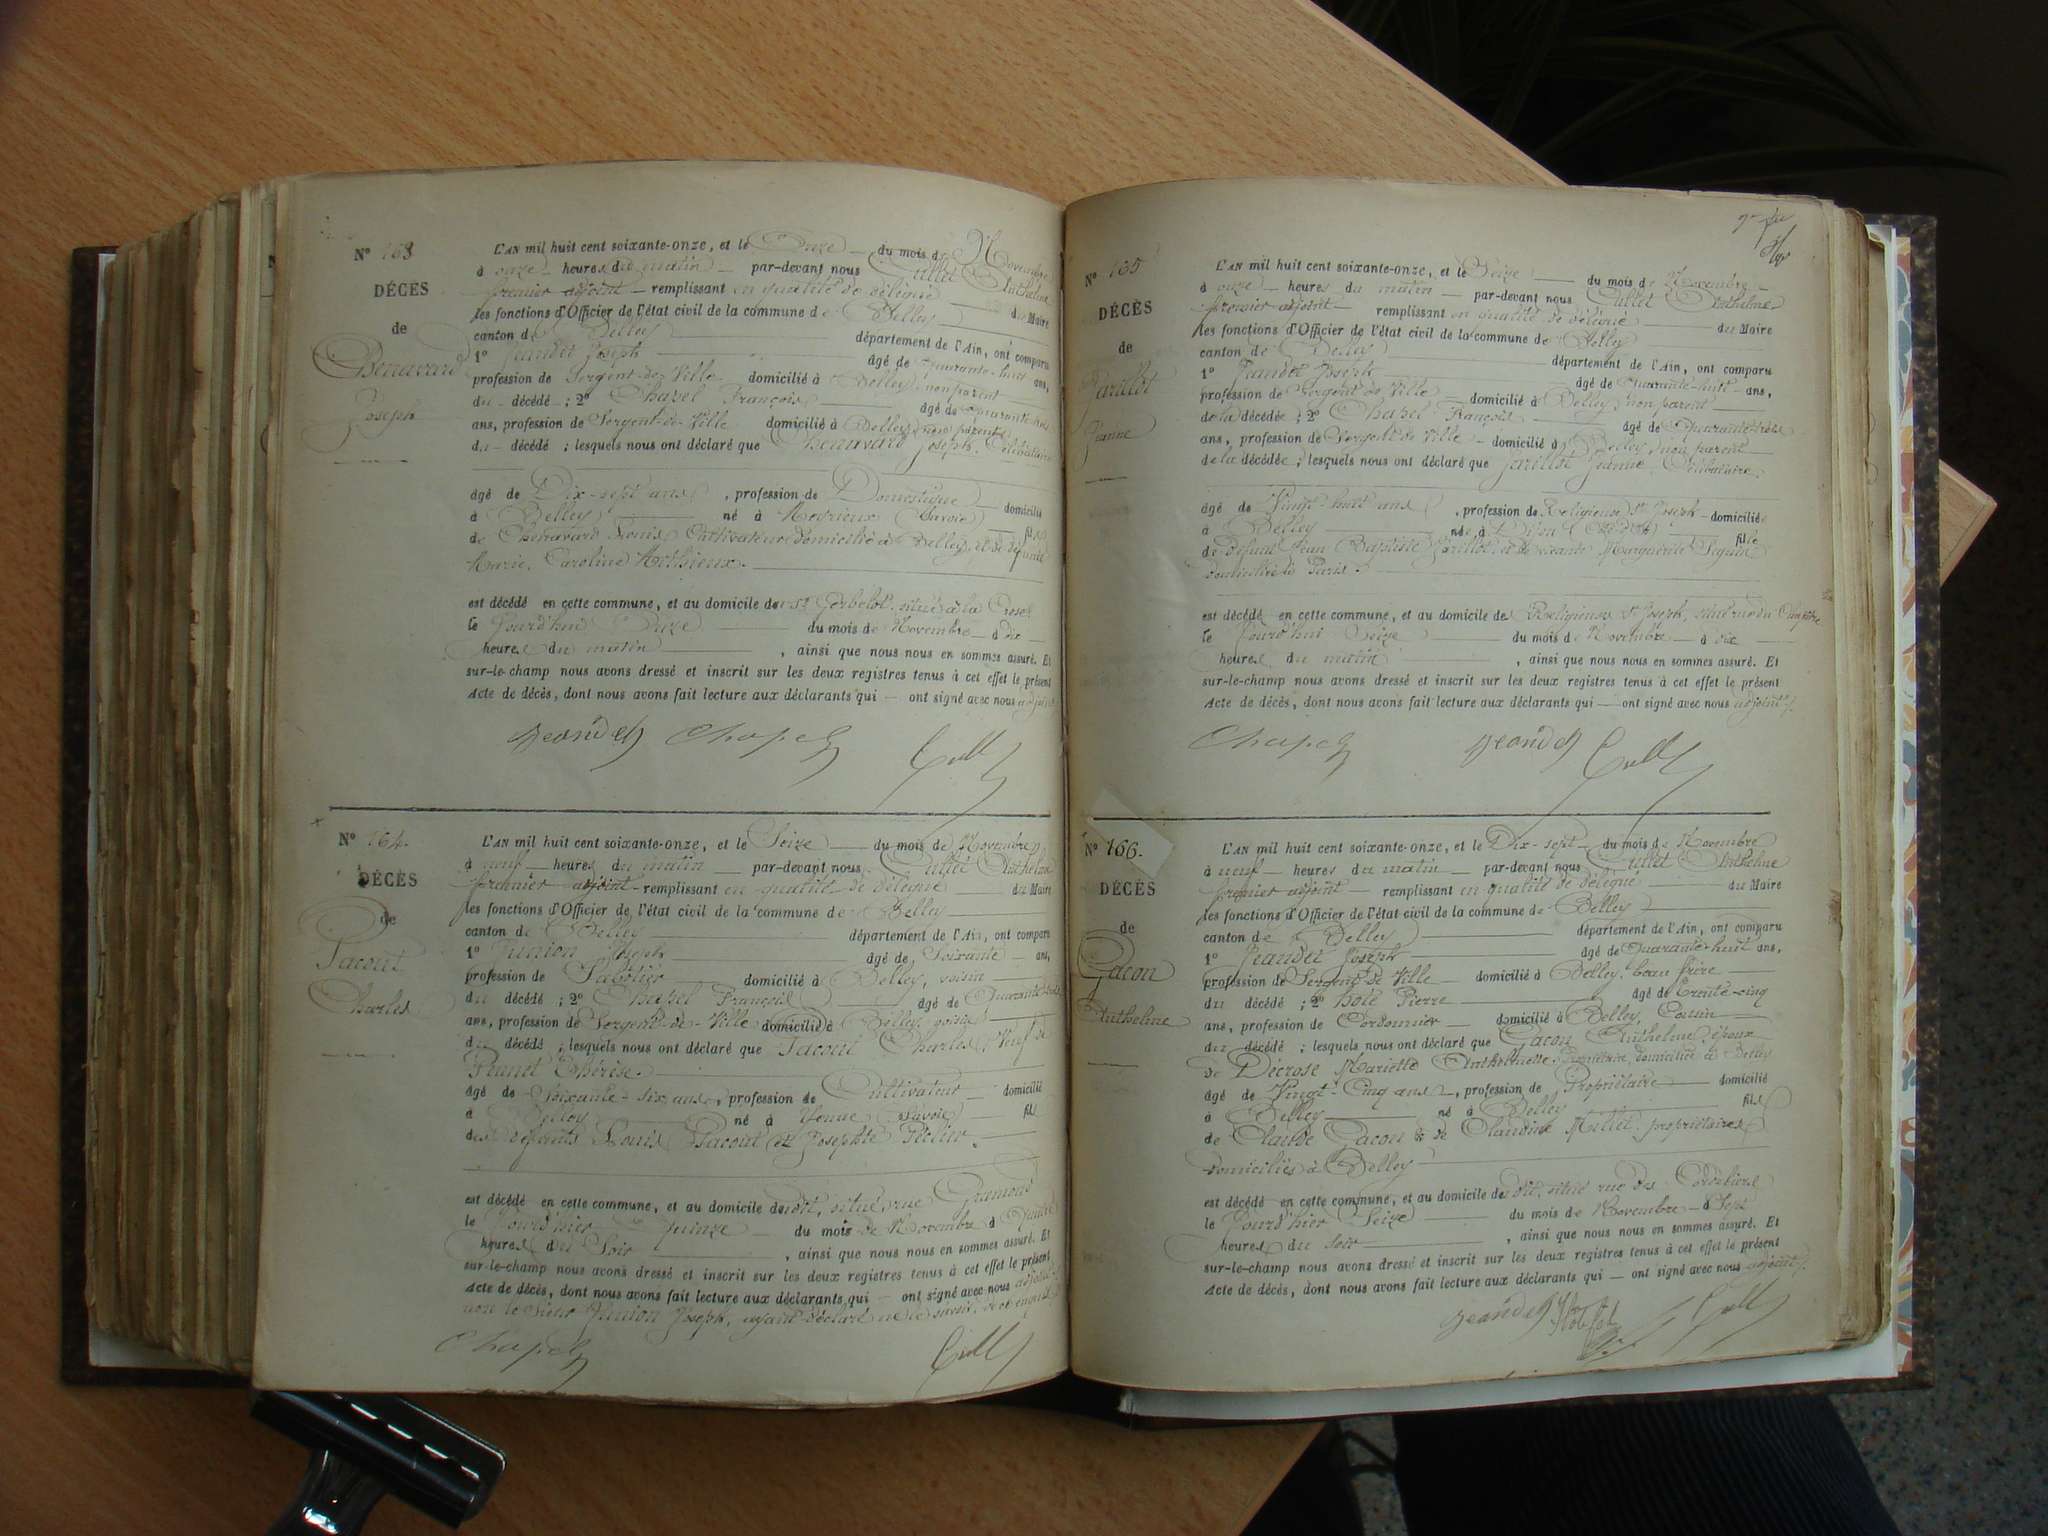 N° 163
DÉCÈS
de
Chenavard
Joseph
L'AN mil huit cent soixante-onze, et le Onze du mois de Novembre
à onze heures du matin par-devant nous Cullet Anthelme
premier adjoint remplissant en qualité de délégué
les fonctions d'Officier de l'état civil de la commune de Belley du Maire
canton de Belley département de l'Ain, ont comparu
1° Jeandet Joseph âgé de Quarante-huit ans,
profession de Sergent-de-Ville domicilié à Belley, non parent
du décédé ; 2° Chapel François âgé de Quarante-trois
ans, profession de Sergent-de-Ville domicilié à Belley, non parent
du décédé ; lesquels nous ont déclaré que Chenavard Joseph, Célibataire
âgé de Dix-sept ans, profession de Domestique domicilié
à Belley né à Meyrieux (Savoie) fils
de Chenavard Louis Cultivateur domicilié à Belley, et de défunte
Marie, Caroline
est décédé en cette commune, et au domicile de situé à la
le Jourd'hui Onze du mois de Novembre à dix
heures du matin, ainsi que nous nous en sommes assuré. Et
sur-le-champ nous avons dressé et inscrit sur les deux registres tenus à cet effet le présent
Acte de décès, dont nous avons fait lecture aux déclarants qui ont signé avec nous adjoint
Jeandet Chapel Cullet
N° 164.
DÉCÈS
de
Pacout
Charles
L'AN mil huit cent soixante-onze, et le Seize du mois de Novembre
à neuf heures du matin par-devant nous Cullet Anthelme
premier adjoint remplissant en qualité de délégué du Maire
les fonctions d'Officier de l'état civil de la commune de Belley
canton de Belley département de l'Ain, ont comparu
1° Junion Joseph âgé de Soixante ans,
profession de domicilié à Belley, voisin
du décédé ; 2° Chapel François âgé de Quarante-trois
ans, profession de Sergent-de-Ville domicilié à Belley, voisin
du décédé ; lesquels nous ont déclaré que Pacout Charles, Veuf de
Thérèse.
âgé de Soixante-six ans, profession de Cultivateur domicilié
à Belley né à Yenne (Savoie) fils
des défunts Louis Pacout et Josephte
est décédé en cette commune, et au domicile dudit, situé, rue
le Jourd'hier Quinze du mois de Novembre à
heures du Soir, ainsi que nous nous en sommes assuré. Et
sur-le-champ nous avons dressé et inscrit sur les deux registres tenus à cet effet le présent
Acte de décès, dont nous avons fait lecture aux déclarants qui ont signé avec nous adjoint
non le Sieur Junion Joseph, ayant déclaré ne le savoir, de ce enquis
Chapel Cullet
N° 165
DÉCÈS
de
Parillot
Jeanne
L'AN mil huit cent soixante-onze, et le Seize du mois de Novembre
à onze heures du matin par-devant nous Cullet Anthelme
premier adjoint remplissant en qualité de délégué du Maire
les fonctions d'Officier de l'état civil de la commune de Belley
canton de Belley département de l'Ain, ont comparu
1° Jeandet Joseph âgé de Quarante-huit ans,
profession de Sergent de Ville domicilié à Belley, non parent
de la décédée ; 2° Chapel François âgé de Quarante-trois
ans, profession de Sergent de Ville domicilié à Belley, non parent
de la décédée ; lesquels nous ont déclaré que Jeanne Célibataire,
âgé de Vingt-huit ans, profession de Religieuse St Joseph domiciliée
à Belley née à Dijon fille
de défunt Jean Baptiste et de vivante Marguerite Seguin
domiciliée à Paris.
est décédé en cette commune, et au domicile des Religieuses St Joseph, situé rue du
le Jourd'hui Seize du mois de Novembre à dix
heures du matin, ainsi que nous nous en sommes assuré. Et
sur-le-champ nous avons dressé et inscrit sur les deux registres tenus à cet effet le présent
Acte de décès, dont nous avons fait lecture aux déclarants qui ont signé avec nous adjoint.
Chapel Jeandet Cullet
N° 166.
DÉCÈS
de
Gacon
Anthelme
L'AN mil huit cent soixante-onze, et le Dix-sept du mois de Novembre
à neuf heures du matin par-devant nous Cullet Anthelme
premier adjoint remplissant en qualité de délégué du Maire
les fonctions d'Officier de l'état civil de la commune de Belley
canton de Belley département de l'Ain, ont comparu
1° Jeandet Joseph âgé de Quarante-huit ans,
profession de Sergent de Ville domicilié à Belley, beau frère
du décédé ; 2° Pierre âgé de Trente-cinq
ans, profession de Cordonnier domicilié à Belley, Cousin
du décédé ; lesquels nous ont déclaré que Gacon Anthelme, époux
de Décrose Mariette Anthelmette, domiciliée à Belley
âgé de Vingt-Cinq ans, profession de Propriétaire domicilié
à Belley né à Belley fils
de Claude Gacon & de Claudine Millet, propriétaires
domiciliés à Belley
est décédé en cette commune, et au domicile dudit, situé rue des
le Jourd'hier Seize du mois de Novembre à Sept
heures du soir, ainsi que nous nous en sommes assuré. Et
sur-le-champ nous avons dressé et inscrit sur les deux registres tenus à cet effet le présent
Acte de décès, dont nous avons fait lecture aux déclarants qui ont signé avec nous adjoint.
Jeandet Cullet